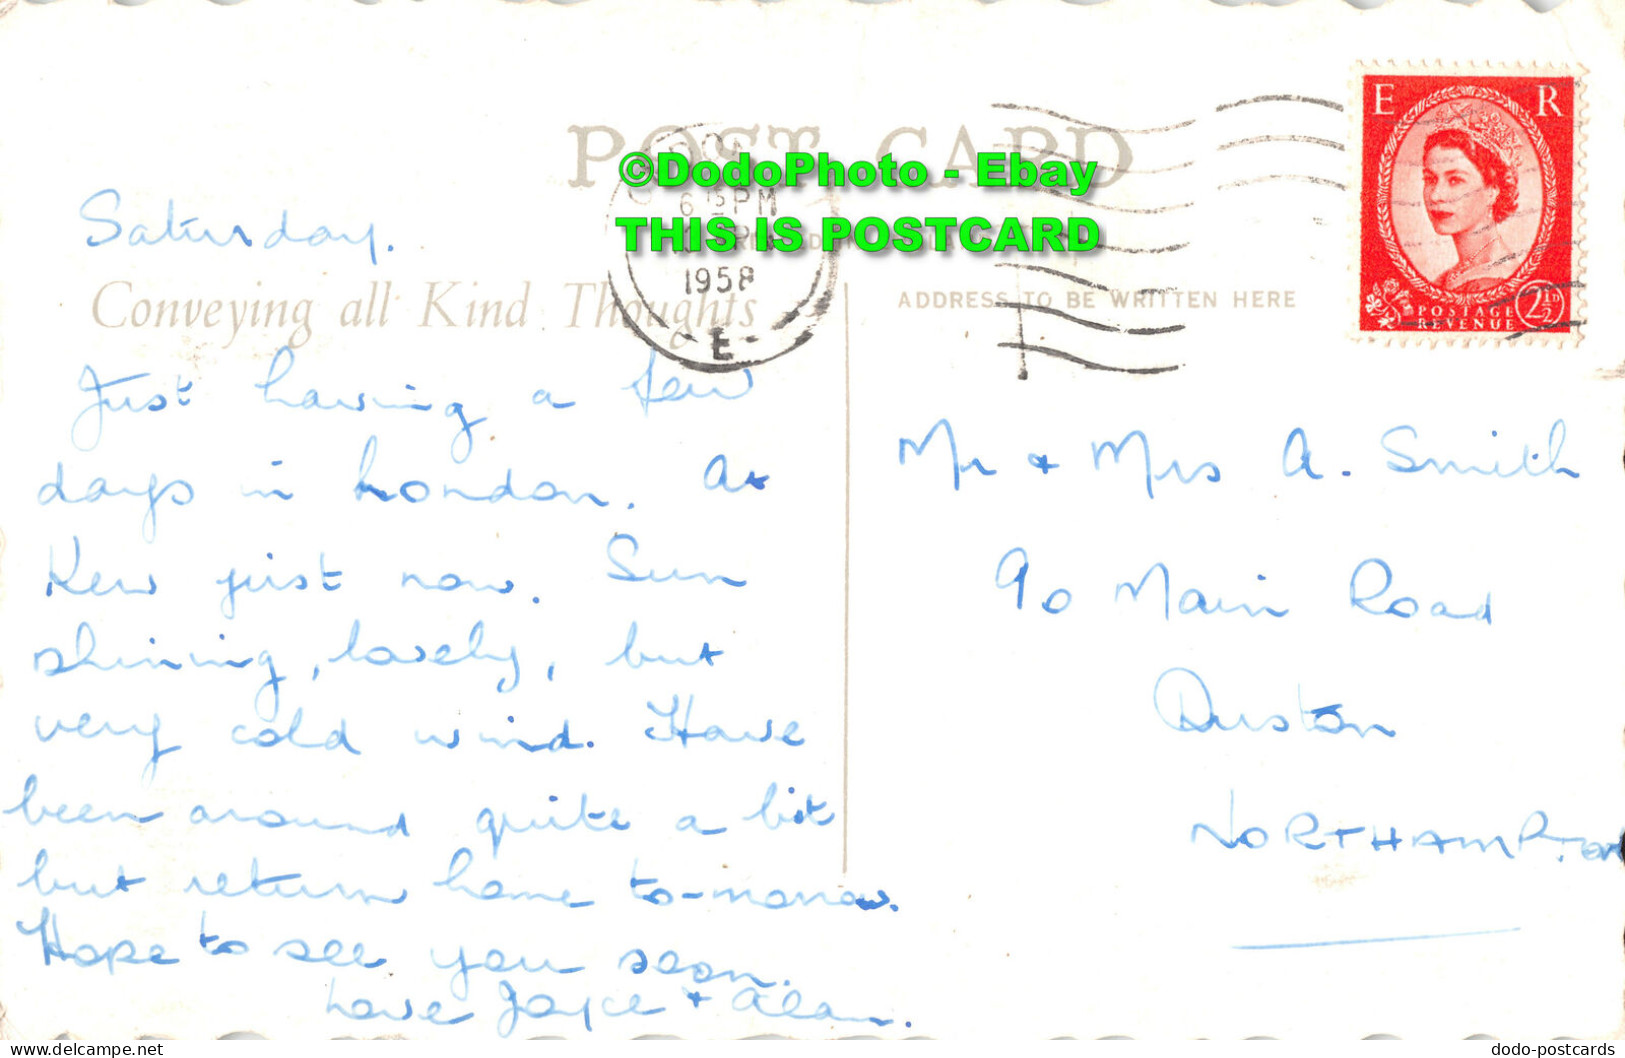 POST CARD
©DodoPhoto - Ebay
THIS IS POSTCARD
6 15 PM
1958
E
E R
POSTAGE
REVENUE
2½D
Saturday.
Conveying all Kind Thoughts
Just having a few
days in London. At
Kew just now. Sun
shining, lovely, but
very cold wind. Have
been around quite a bit
but return home to-morrow.
Hope to see you soon.
Love Joyce + Alan.
ADDRESS TO BE WRITTEN HERE
Mr + Mrs A. Smith
90 Main Road
Duston
NORTHAMPTON
dodo-postcards
delcampe.net